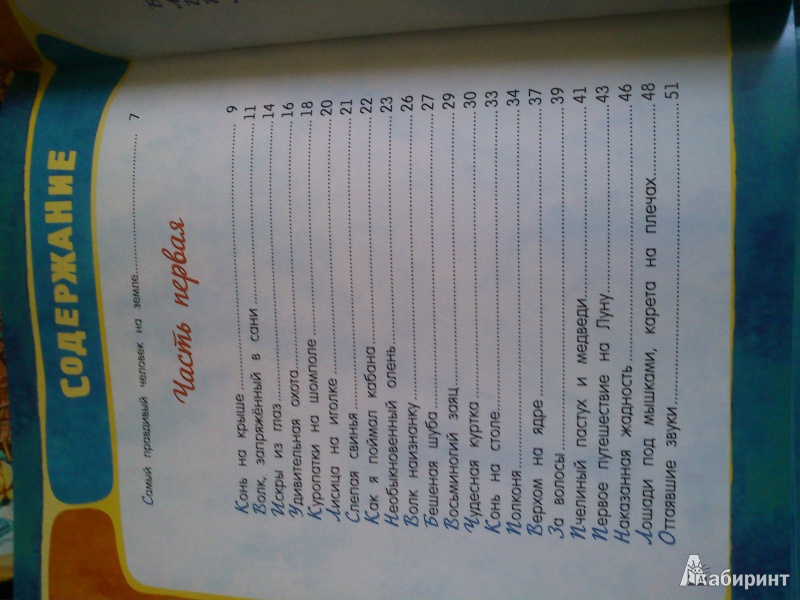 СОДЕРЖАНИЕ
Самый правдивый человек на земле 7
Часть первая
Конь на крыше 9
Волк, запряжённый в сани 11
Искры из глаз 14
Удивительная охота 16
Куропатки на шомполе 18
Лисица на иголке 20
Слепая свинья 21
Как я поймал кабана 22
Необыкновенный олень 23
Волк наизнанку 26
Бешеная шуба 27
Восьминогий заяц 29
Чудесная куртка 30
Конь на столе 33
Полконя 34
Верхом на ядре 37
За волосы 39
Пчелиный пастух и медведи 41
Первое путешествие на Луну 43
Наказанная жадность 46
Лошади под мышками, карета на плечах 48
Оттаявшие звуки 51
Лабиринт